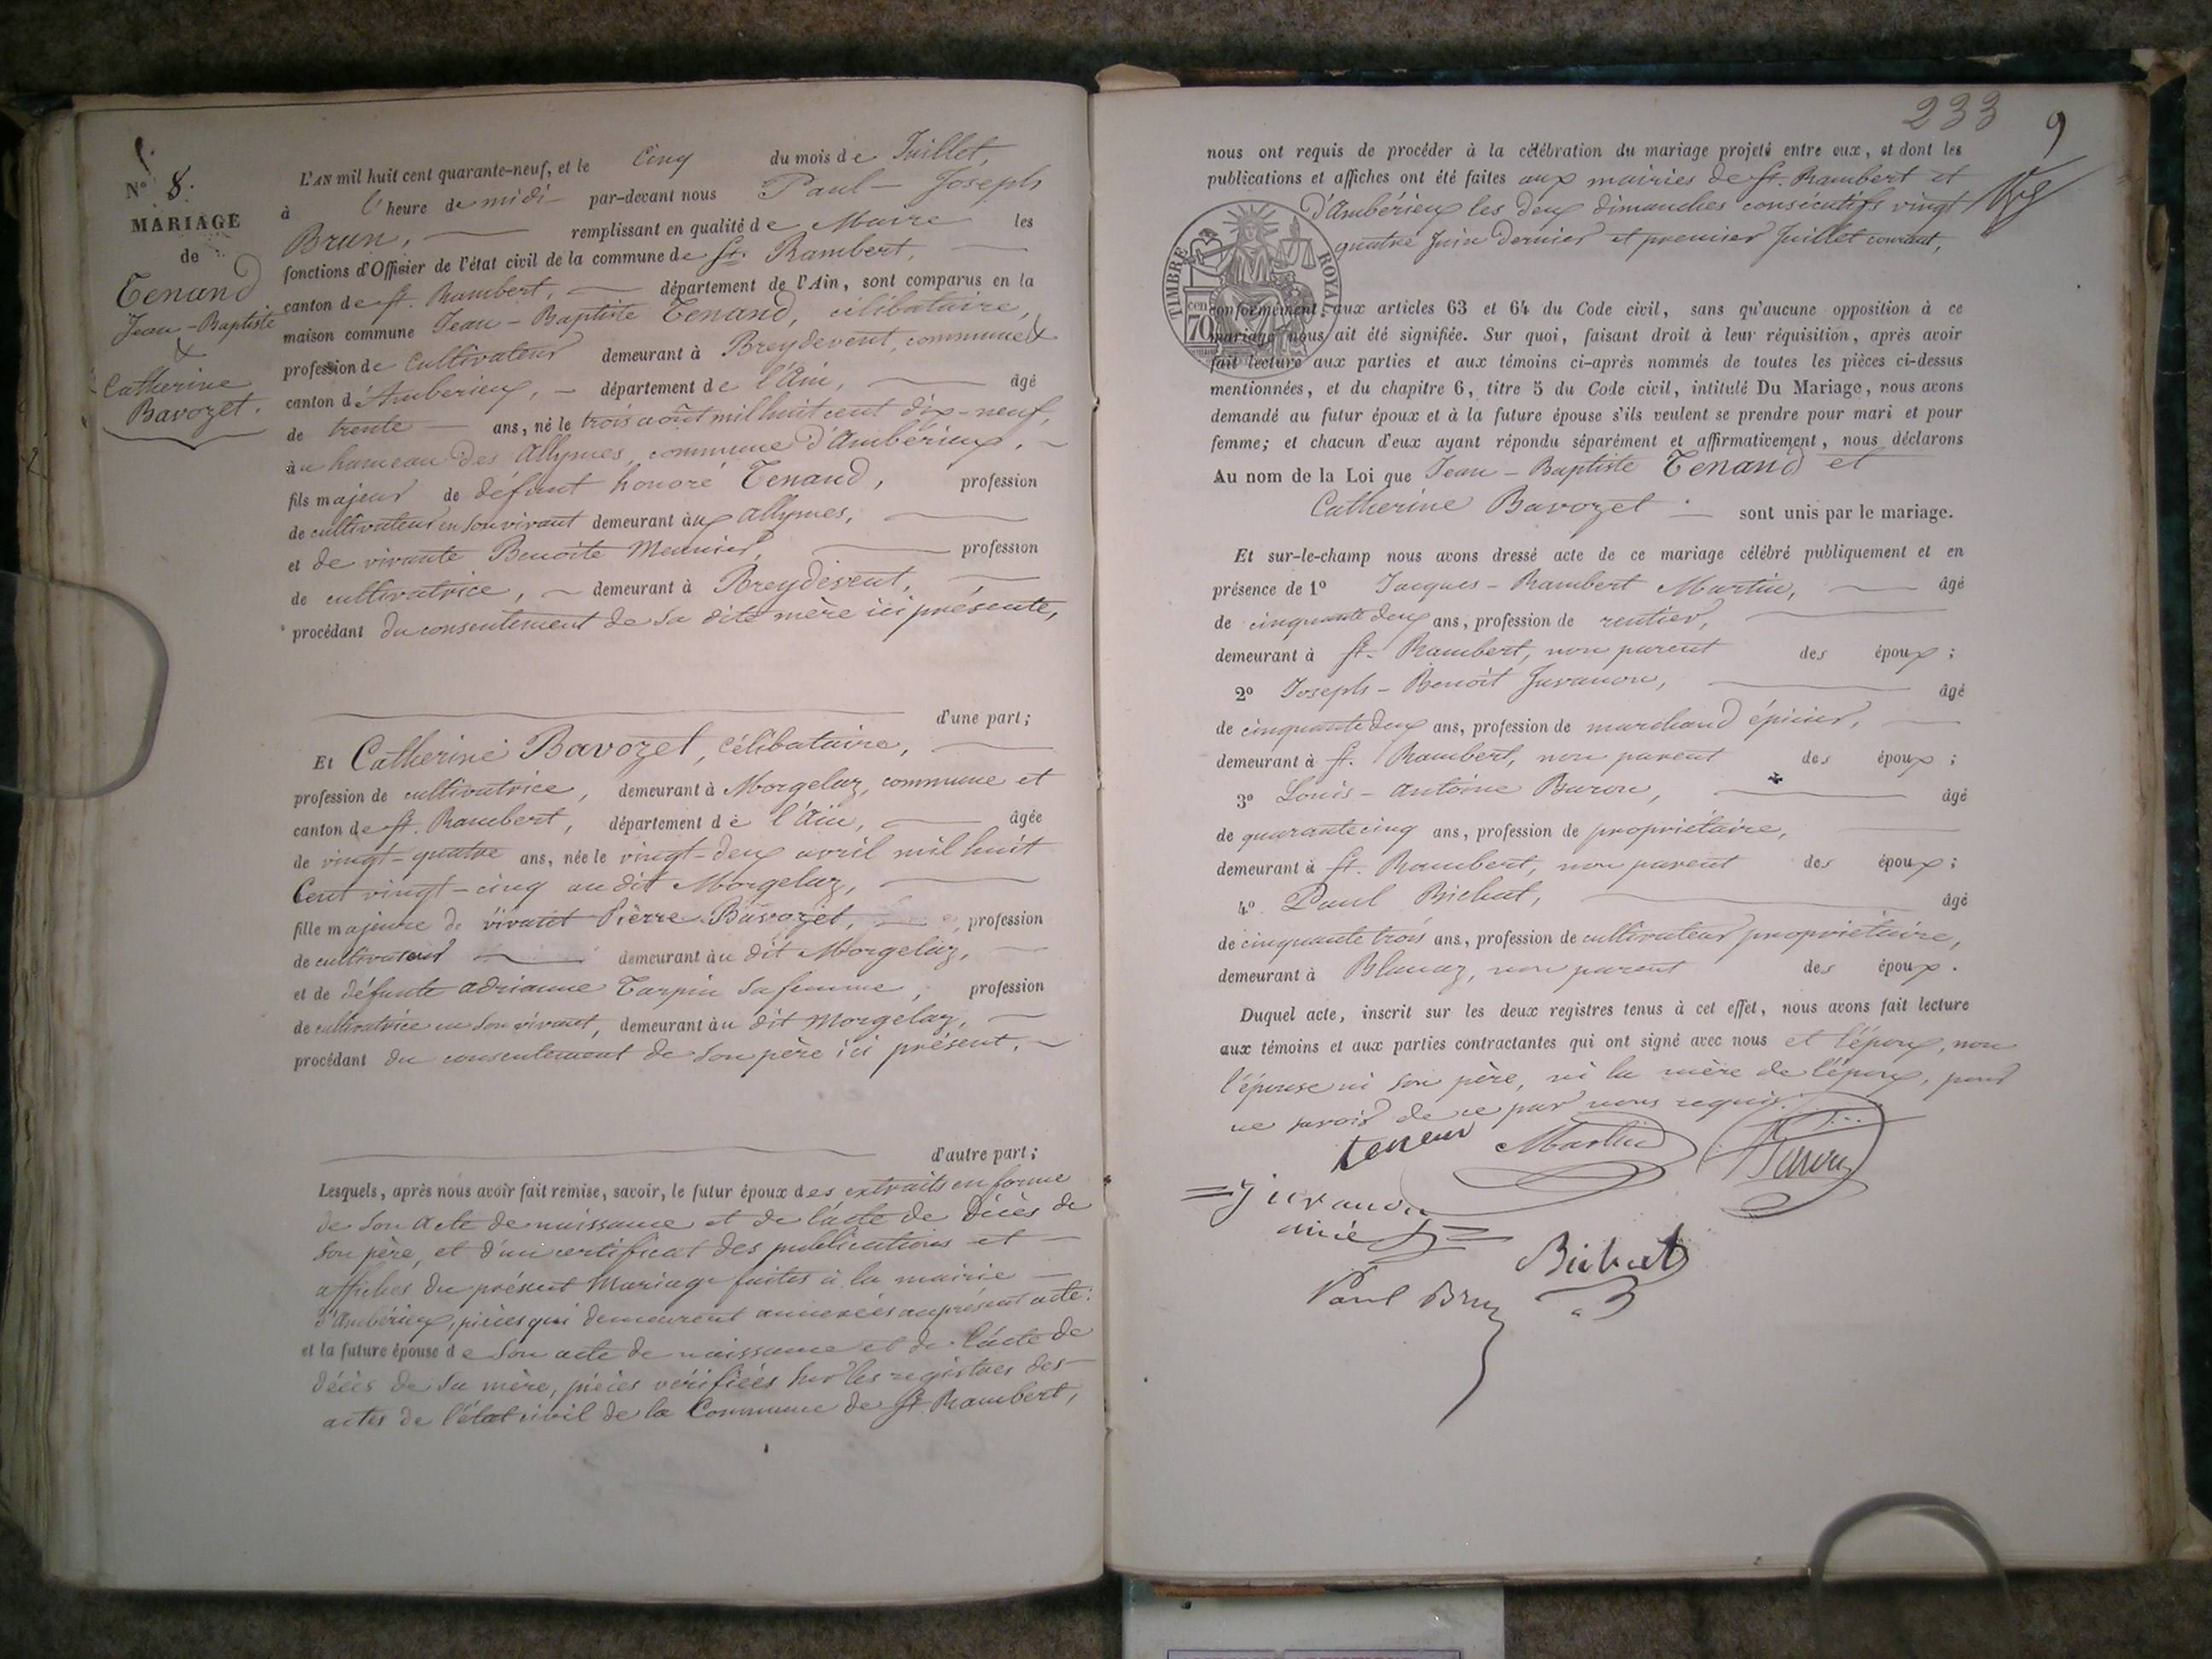 N° 8.
MARIAGE
de
Tenand
Jean-Baptiste
&
Catherine
Bavozet.
L'AN mil huit cent quarante-neuf, et le cinq du mois de Juillet,
à l'heure de midi par-devant nous Paul-Joseph
Brun, remplissant en qualité de Maire les
fonctions d'Officier de l'état civil de la commune de St. Rambert,
canton de St. Rambert, département de l'Ain, sont comparus en la
maison commune Jean-Baptiste Tenand, célibataire,
profession de cultivateur demeurant à Breydevent, commune &
canton d'Ambérieux, département de l'Ain, âgé
de trente ans, né le trois août mil huit cent dix-neuf,
au hameau des Allymes, commune d'Ambérieux,
fils majeur de défunt honoré Tenand, profession
de cultivateur en son vivant demeurant aux allymes,
et de vivante Benoite Meunier, profession
de cultivatrice, demeurant à Breydevent,
procédant du consentement de sa dite mère ici présente,
d'une part;
Et Catherine Bavozet, célibataire,
profession de cultivatrice, demeurant à Morgelaz, commune et
canton de St. Rambert, département de l'Ain, âgée
de vingt-quatre ans, née le vingt-deux avril mil huit
Cent vingt-cinq au dit Morgelaz,
fille majeure de vivant Pierre Bavozet, profession
de cultivateur demeurant au dit Morgelaz,
et de défunte adrianne Tarpin sa femme, profession
de cultivatrice en son vivant, demeurant au dit Morgelaz,
procédant du consentement de son père ici présent,
d'autre part;
Lesquels, après nous avoir fait remise, savoir, le futur époux des extraits en forme
de son acte de naissance et de l'acte de Décès de
son père, et d'un certificat des publications et
affiches du présent mariage faites à la mairie
d'Ambérieux, pièces qui demeurent annexées au présent acte:
et la future épouse de son acte de naissance et de l'acte de
décès de sa mère, pièces vérifiées sur les registres des
actes de l'état civil de la Commune de St Rambert,
233
9
nous ont requis de procéder à la célébration du mariage projeté entre eux, et dont les
publications et affiches ont été faites aux mairies de St. Rambert et
d'Ambérieux les deux dimanches consécutifs vingt
quatre Juin dernier et premier Juillet courant,
TIMBRE ROYAL
cen 70
conformément aux articles 63 et 64 du Code civil, sans qu'aucune opposition à ce
mariage nous ait été signifiée. Sur quoi, faisant droit à leur réquisition, après avoir
fait lecture aux parties et aux témoins ci-après nommés de toutes les pièces ci-dessus
mentionnées, et du chapitre 6, titre 5 du Code civil, intitulé Du Mariage, nous avons
demandé au futur époux et à la future épouse s'ils veulent se prendre pour mari et pour
femme; et chacun d'eux ayant répondu séparément et affirmativement, nous déclarons
Au nom de la Loi que Jean-Baptiste Tenand et
Catherine Bavozet sont unis par le mariage.
Et sur-le-champ nous avons dressé acte de ce mariage célébré publiquement et en
présence de 1° Jacques-Rambert Martin, âgé
de cinquante deux ans, profession de rentier,
demeurant à St. Rambert, non parent des époux;
2° Joseph-Benoit Juvanon, âgé
de cinquante deux ans, profession de marchand épicier,
demeurant à St. Rambert, non parent des époux;
3° Louis-antoine Buron, âgé
de quarante cinq ans, profession de propriétaire,
demeurant à St. Rambert, non parent des époux;
4° Paul Bichat, âgé
de cinquante trois ans, profession de cultivateur propriétaire,
demeurant à Blanaz, non parent des époux.
Duquel acte, inscrit sur les deux registres tenus à cet effet, nous avons fait lecture
aux témoins et aux parties contractantes qui ont signé avec nous et l'époux, non
l'épouse ni son père, ni la mère de l'époux, pour
ne savoir de ce par nous requis.
Martin
Juvanon
Bichat
Paul Brun